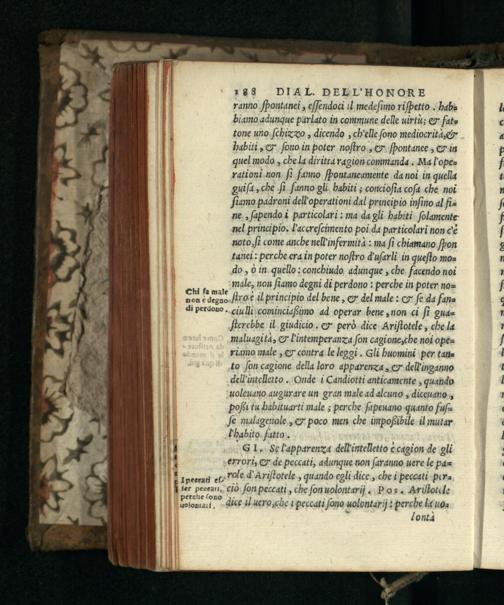 188 DIAL. DELL'HONORE
ranno spontanei, essendoci il medesimo rispetto. hab-
biamo adunque parlato in commune delle uirtù; & fat-
tone uno schizzo, dicendo, ch'elle sono mediocrità, &
habiti, & sono in poter nostro, & spontanee, & in
quel modo, che la diritta ragion commanda. Ma l'ope-
rationi non si fanno spontaneamente da noi in quella
guisa, che si fanno gli habiti; conciosia cosa che noi
siamo padroni dell'operationi dal principio insino al fi-
ne, sapendo i particolari: ma da gli habiti solamente
nel principio. l'accrescimento poi da particolari non c'è
noto, si come anche nell'infermità: ma si chiamano spon
tanei: perche era in poter nostro d'usarli in questo mo-
do, ò in quello: conchiudo adunque, che facendo noi
male, non siamo degni di perdono: perche in poter no-
stro è il principio del bene, & del male: & se da fan-
ciulli cominciaßimo ad operar bene, non ci si gua-
sterebbe il giudicio. & però dice Aristotele, che la
maluagità, & l'intemperanza son cagione, che noi ope-
riamo male, & contra le leggi. Gli huomini per tan-
to son cagione della loro apparenza, & dell'inganno
dell'intelletto. Onde i Candiotti anticamente, quando
uoleuano augurare un gran male ad alcuno, diceuano,
poßi tu habituarti male; perche sapeuano quanto fus-
se malageuole, & poco men che impoßibile il mutar
l'habito fatto.
GI. Se l'apparenza dell'intelletto è cagion de gli
errori, & de peccati, adunque non saranno uere le pa-
role d'Aristotele, quando egli dice, che i peccati per-
ciò son peccati, che son uolontarij. POS. Aristotele
dice il uero, che i peccati sono uolontarij: perche la uo-
lontà
Chi fa male
non è degno
di perdono.
I peccati es-
ser peccati,
perche sono
uolontari.